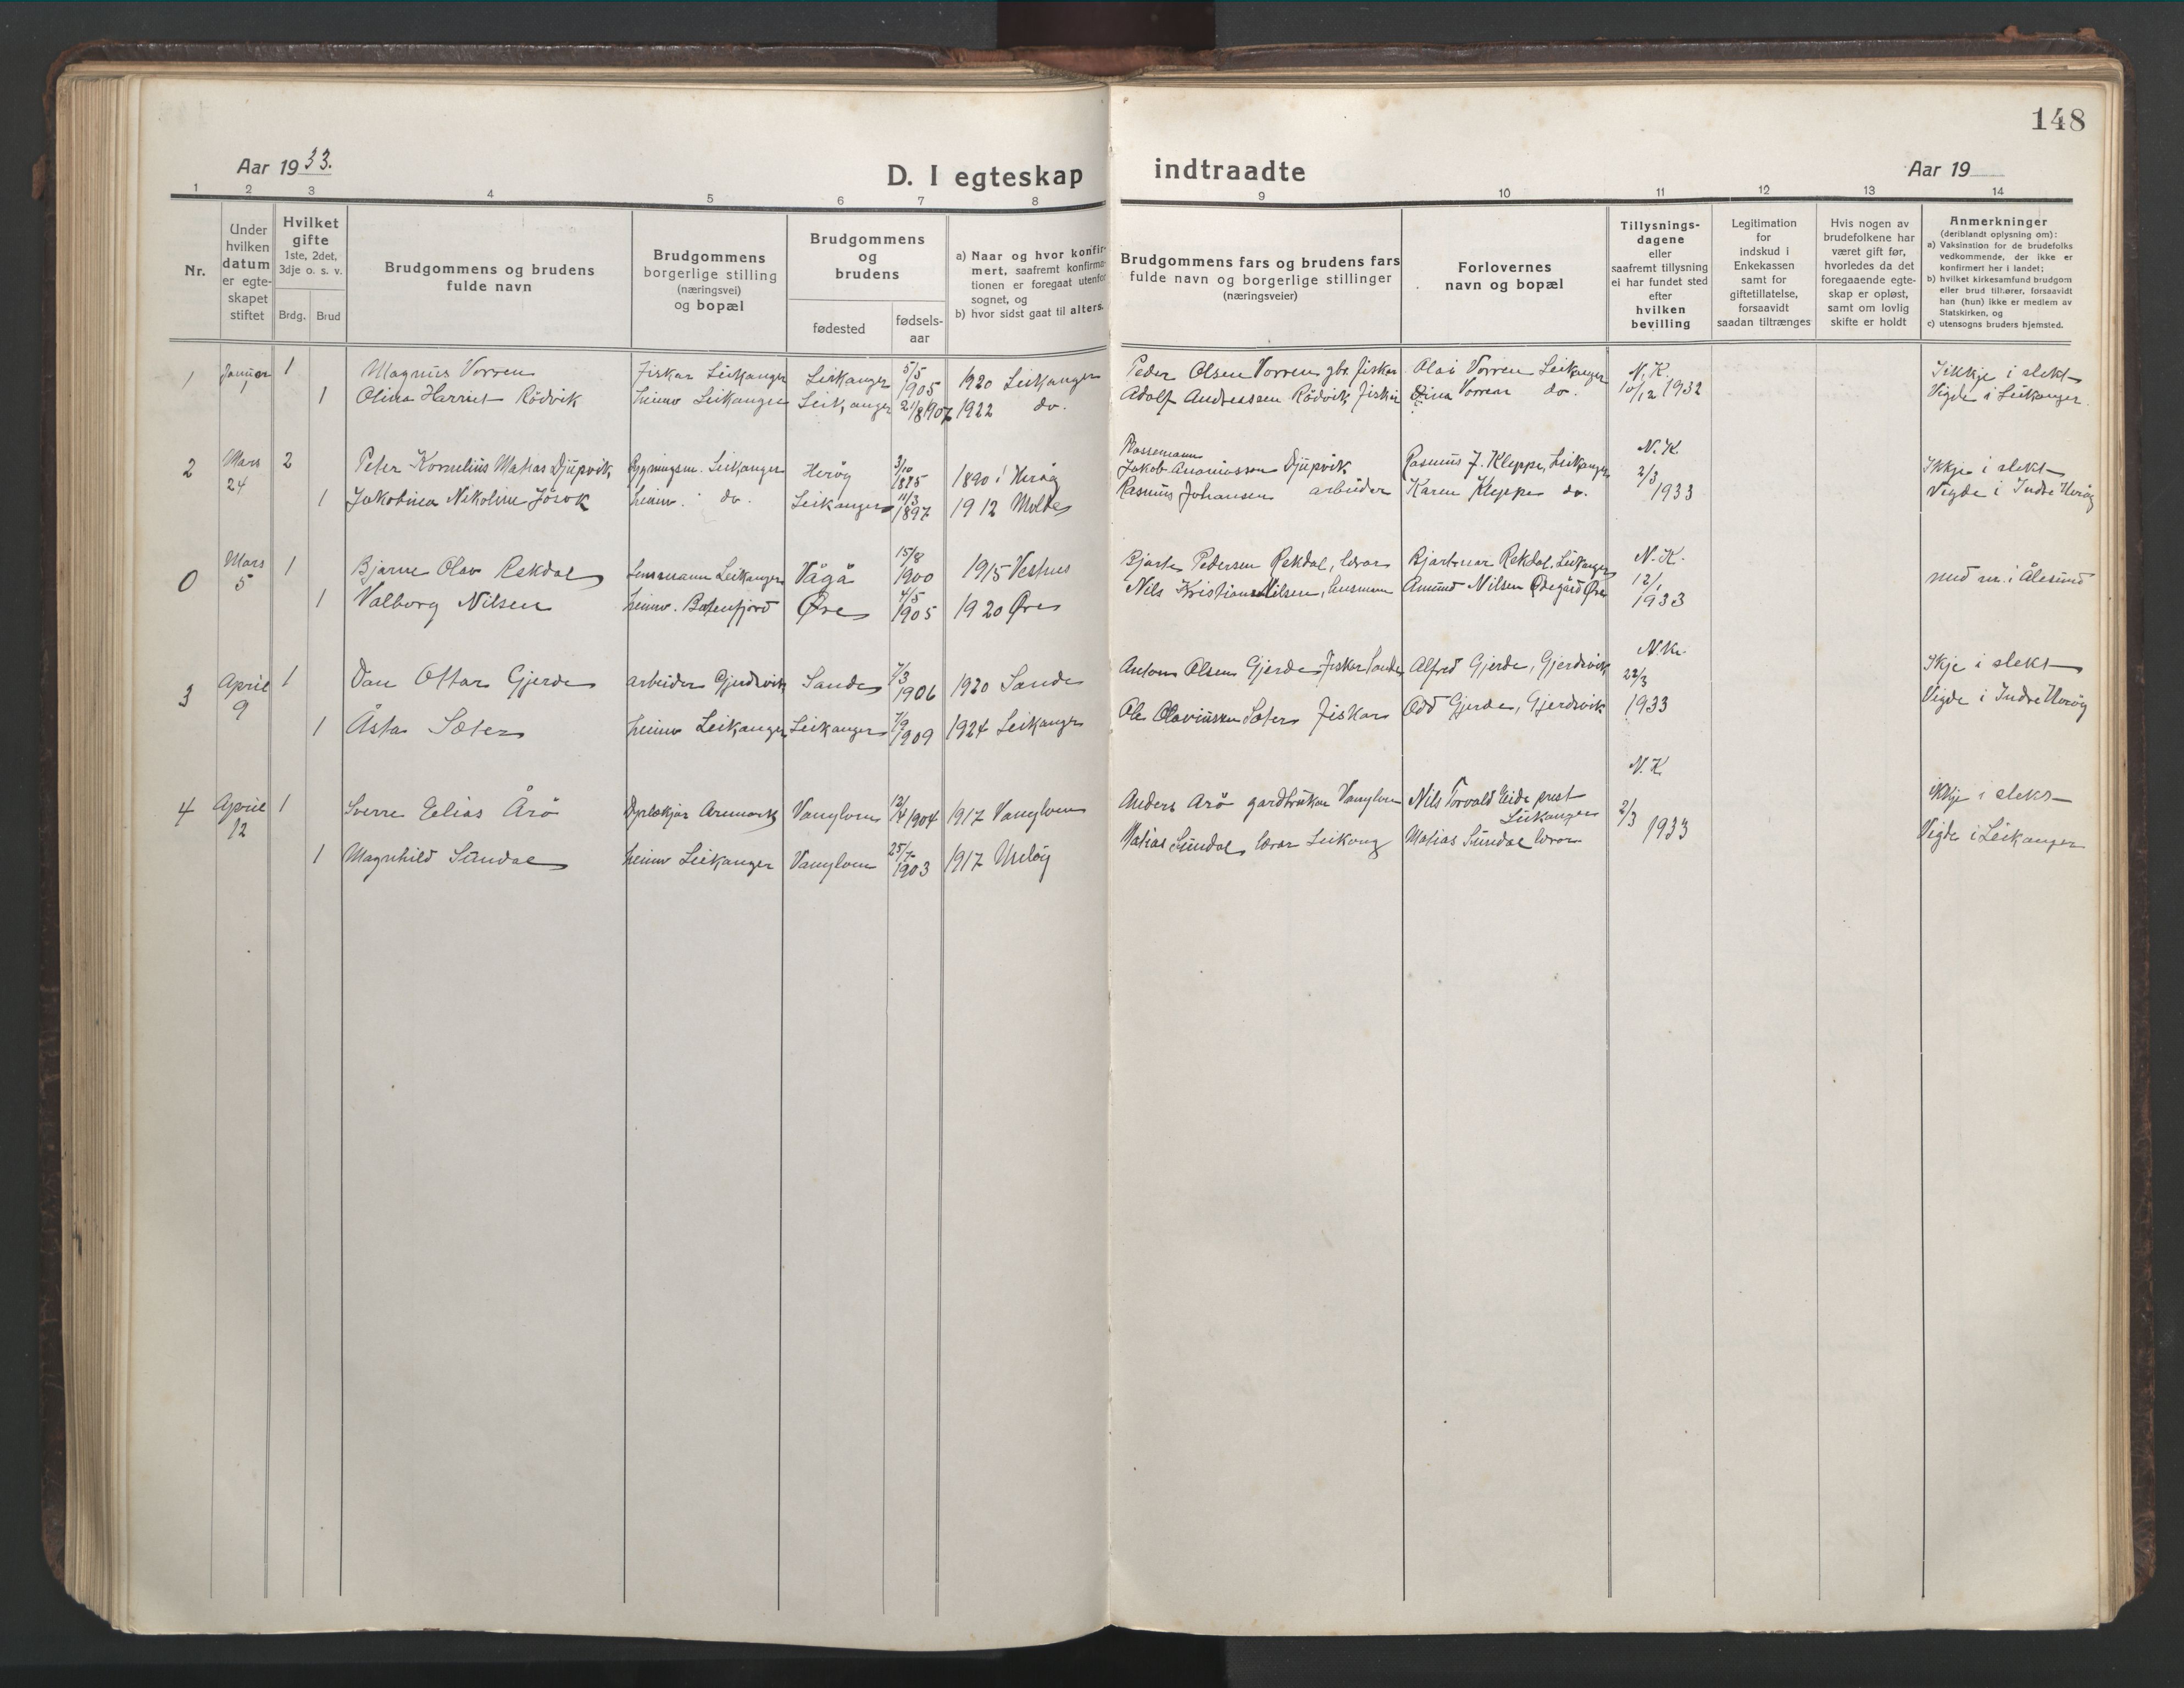 148
Aar 1933.
D. I egteskap indtraadte
Aar 19
1 2 3 4 5 6 7 8 9 10 11 12 13 14
Nr.
Under hvilken datum er egte-skapet stiftet
Hvilket gifte 1ste, 2det, 3dje o. s. v.
Brdg. Brud
Brudgommens og brudens fulde navn
Brudgommens borgerlige stilling (næringsvei) og bopæl
Brudgommens og brudens
fødested
fødsels-aar
a) Naar og hvor konfir-mert, saafremt konfirma-tionen er foregaat utenfor sognet, og
b) hvor sidst gaat til alters.
Brudgommens fars og brudens fars fulde navn og borgerlige stillinger (næringsveier)
Forlovernes navn og bopæl
Tillysnings-dagene eller saafremt tillysning ei har fundet sted efter hvilken bevilling
Legitimation for indskud i Enkekassen samt for giftetillatelse, forsaavidt saadan tiltrænges
Hvis nogen av brudefolkene har været gift før, hvorledes da det foregaaende egte-skap er opløst, samt om lovlig skifte er holdt
Anmerkninger
(deriblandt oplysning om):
a) Vaksination for de brudefolks vedkommende, der ikke er konfirmert her i landet;
b) hvilket kirkesamfund brudgom eller brud tilhører, forsaavidt han (hun) ikke er medlem av Statskirken, og
c) utensogns bruders hjemsted.
1 Januar 1 1 Magnus Vorren Fiskar Leikanger Leikanger 5/5 1905 1920 Leikanger Peder Olsen Vorren gbr. fiskar Olai Vorren Leikanger N. K. Ikkje i slekt
1 Olina Harriet Rödvik heimv Leikanger Leikanger 21/8 1907 1922 do. Adolf Andreassen Rödvik fiskar Vorren do. 10/12 1932 Vigde i Leikanger.
2 Mars 24 2 Peter Kornelius Matias Djupvik Leikanger Heröy 3/10 1875 1890 i Heröy Jakob Djupvik Rasmus J. Kleppe, Leikanger N. K. 2/3 1933 Ikkje i slekt
1 Jakobina Nikoline Jösok heimv. do. Leikanger 11/3 1897 1912 Molte Rasmus Johansen arbeider Karen Kleppe do. Vigde i Indre Heröy
0 Mars 5 1 Bjarne Olav Rekdal Lensmann Leikanger Vågå 15/8 1900 1915 Vestnes Bjarte Pedersen Rekdal, lærar Rekdal, Leikanger N. K. 12/1 1933
1 Valborg Nilsen heimv. Batnfjord Øre 4/5 1905 1920 Øre Nils Kristian Nilsen, husmann Amund Nilsen Ødegård Øre
med nr. i Ålesund
3 April 9 1 Dan Ottar Gjerde arbeider Gjerdsvik Sande 7/3 1906 1920 Sande Anton Olsen Gjerde Fiskar Sande Alfred Gjerde, Gjerdsvik N.K. 22/3 1933 Ikje i slekt
1 Åsta Sæter heimv Leikanger Leikanger 7/9 1909 1924 Leikanger Ole Olaviussen Sæter Fiskar Odd Gjerde, Gjerdsvik Vigde i Indre Heröy
4 April 12 1 Sverre Elias Årö Dyrlækjar Aremark Vanylven 12/4 1904 1917 Vanylven Anders Årö gardbrukar Vanylven Nils Torvald Eide prest Leikanger N. K. 2/3 1933 ikkje i slekt
1 Magnhild Sundal heimv Leikanger Vanylven 25/7 1903 1917 Matias Sundal lærar Leikang Matias Sundal lærar Vigde i Leikanger